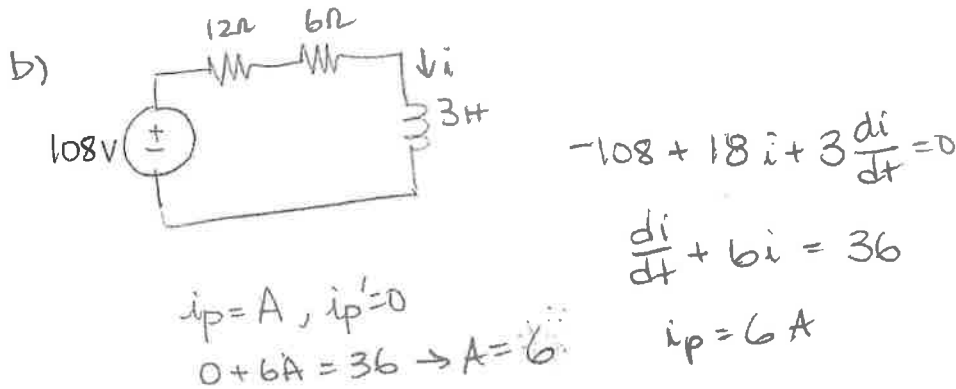 b)
12Ω 6Ω
↓i
3H
108V
+
-
-108 + 18i + 3 di/dt = 0
di/dt + 6i = 36
ip = A, ip' = 0
0 + 6A = 36 → A = 6
ip = 6 A